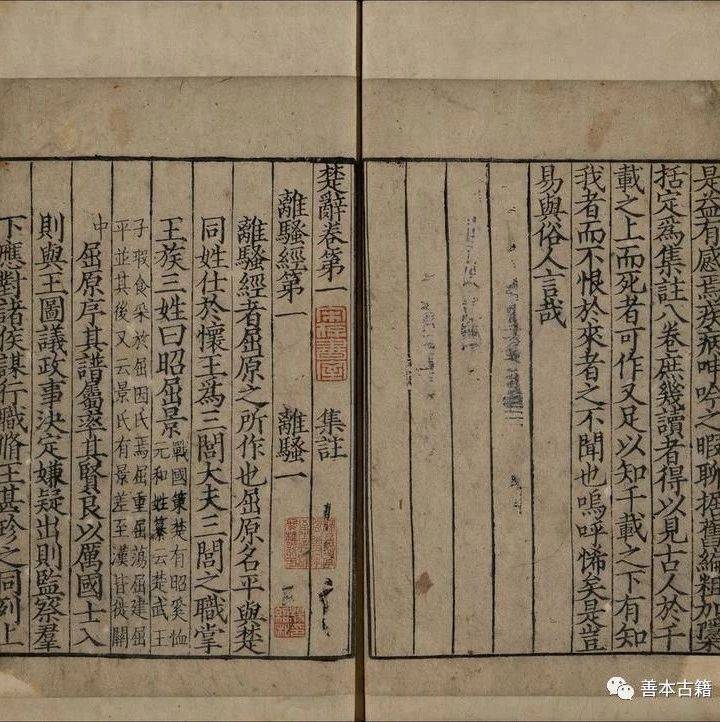 是益有感焉疾病呻吟之暇聊据舊編粗加隱
括定為集註八卷庶幾讀者得以見古人於千
載之上而死者可作又足以知千載之下有知
我者而不恨於來者之不聞也嗚呼悕矣是豈
易與俗人言哉
楚辭卷第一 集註
離騷經第一 離騷一
離騷經者屈原之所作也屈原名平與楚
同姓仕於懷王為三閭大夫三閭之職掌
王族三姓曰昭屈景
戰國策楚有昭奚恤
元和姓纂云楚武王
子瑕食采於屈因氏焉屈重屈蕩屈建屈
平並其後又云景氏有景差至漢皆徙關
中
屈原序其譜屬率其賢良以厲國士入
則與王圖議政事決定嫌疑出則監察羣
下應對諸侯謀行職脩王甚珍之同列上
善本古籍